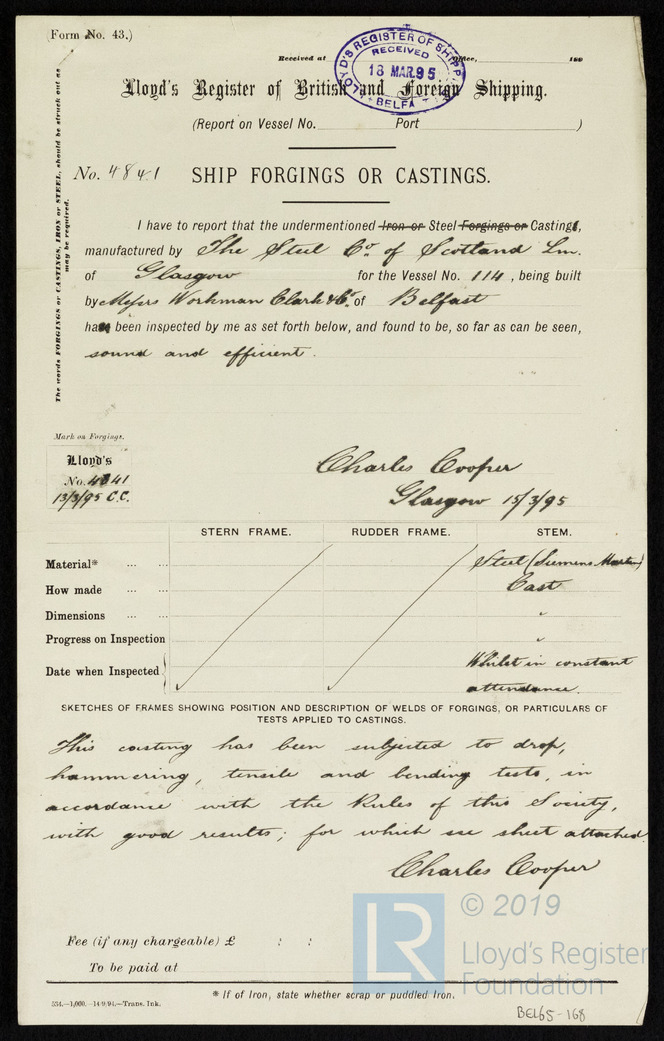 (Form No. 43.)
Received at Office, 189
LLOYD'S REGISTER OF SHIPPING
RECEIVED
18 MAR.95
BELFAST
Lloyd's Register of British and Foreign Shipping.
(Report on Vessel No. Port )
The words FORGINGS or CASTINGS, IRON or STEEL, should be struck out as
may be required.
No. 4841 SHIP FORGINGS OR CASTINGS.
I have to report that the undermentioned Iron or Steel Forgings or Casting,
manufactured by The Steel Co. of Scotland Lm.
of Glasgow for the Vessel No. 114, being built
by Messrs Workman Clark & Co. of Belfast
has been inspected by me as set forth below, and found to be, so far as can be seen,
sound and efficient.
Mark on Forgings.
Lloyd's
No. 4841
13/3/95 C.C.
Charles Cooper
Glasgow 15/3/95
STERN FRAME. RUDDER FRAME. STEM.
Material* ... ... Steel (Siemens Martin)
How made ... ... Cast
Dimensions ... ... "
Progress on Inspection "
Date when Inspected Whilst in constant
attendance.
SKETCHES OF FRAMES SHOWING POSITION AND DESCRIPTION OF WELDS OF FORGINGS, OR PARTICULARS OF
TESTS APPLIED TO CASTINGS.
This casting has been subjected to drop,
hammering, tensile and bending tests, in
accordance with the Rules of this Society,
with good results; for which see sheet attached.
Charles Cooper
LR © 2019
Lloyd's Register
Foundation
Fee (if any chargeable) £ : :
To be paid at
* If of Iron, state whether scrap or puddled Iron.
554.—1,000.—14/9/94.—Trans. Ink.
BEL65-168